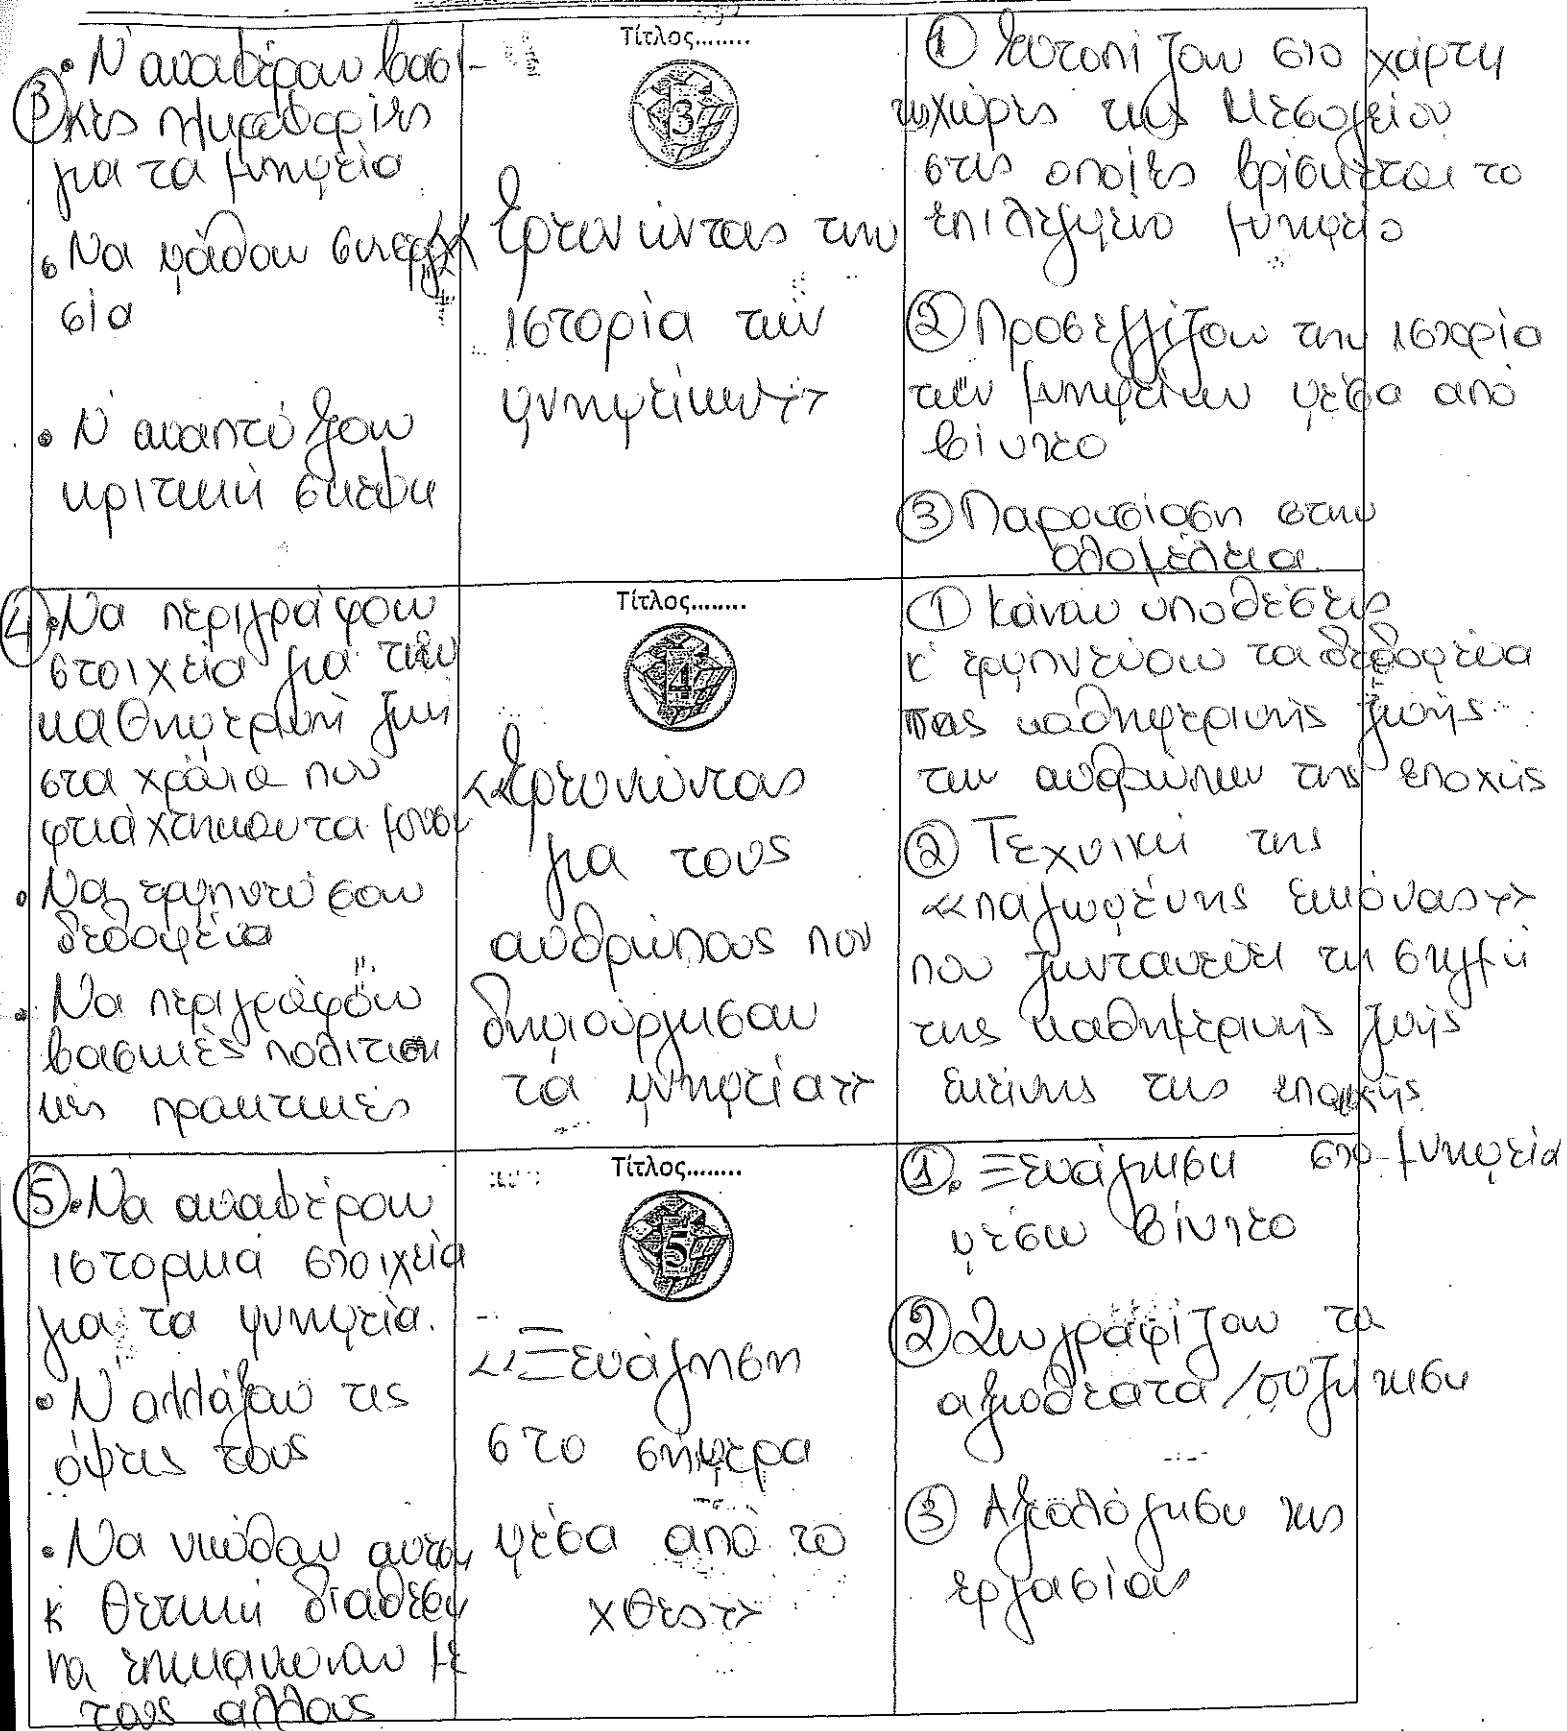 ③ • Ν' αναφέρουν βασι-
κές πληροφορίες
για τα μνημεία
• Να μάθουν συνεργα
σία
• Ν' αναπτύξουν
κριτική σκέψη
Τίτλος........
3
«Ερευνώντας την
ιστορία των
μνημείων»
① Εντοπίζουν στο χάρτη
τις χώρες της Μεσογείου
στις οποίες βρίσκεται το
επιλεγμένο μνημείο
② Προσεγγίζουν την ιστορία
των μνημείων μέσα από
βίντεο
③ Παρουσίαση στην
ολομέλεια.
④ • Να περιγράφουν
στοιχεία για την
καθημερινή ζωή
στα χρόνια που
φτιάχτηκαν τα
• Να ερμηνεύσουν
δεδομένα
• Να περιγράφουν
βασικές πολιτιστι
κές πρακτικές
Τίτλος........
4
«Ερευνώντας
για τους
ανθρώπους που
δημιούργησαν
τα μνημεία»
① Κάνουν υποθέσεις
κ' ερμηνεύουν τα δεδομένα
της καθημερινής ζωής
των ανθρώπων της εποχής
② Τεχνική της
«παγωμένης εικόνας»
που ζωντανεύει τη στιγμή
της καθημερινής ζωής
εκείνης της εποχής
⑤ • Να αναφέρουν
ιστορικά στοιχεία
για τα μνημεία.
• Ν' αλλάξουν τις
όψεις τους
• Να νιώθουν
κ θετική διάθεση
να επικοινωνούν με
τους άλλους
Τίτλος........
5
«Ξενάγηση
στο σήμερα
μέσα από το
χθες»
①. Ξενάγηση στα μνημεία
μέσω βίντεο
② Ζωγραφίζουν τα
αξιοθέατα/συζήτηση
③ Αξιολόγηση της
εργασίας